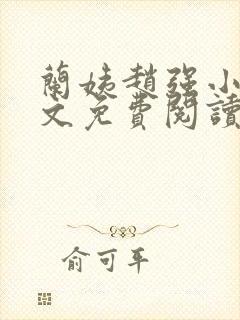 蘭姨趙強小
文免費閱讀
俞可平